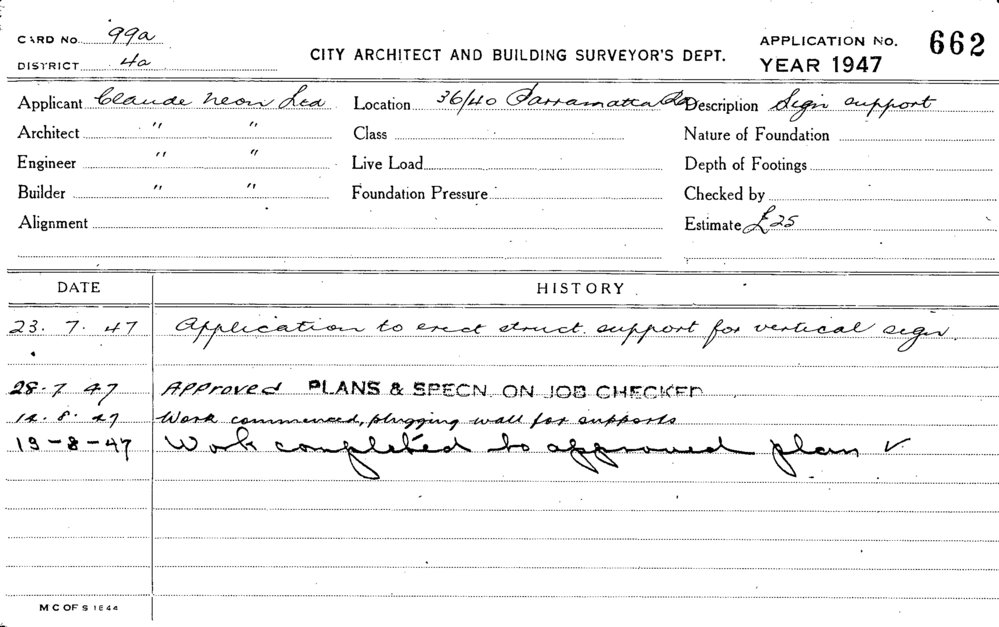 CARD No. 99a
DISTRICT 4a
CITY ARCHITECT AND BUILDING SURVEYOR'S DEPT.
APPLICATION No. 662
YEAR 1947
Applicant Claude Neon Ltd Location 36/40 Parramatta Rd Description Sign support
Architect " " Class Nature of Foundation
Engineer " " Live Load Depth of Footings
Builder " " Foundation Pressure Checked by
Alignment Estimate £25
DATE HISTORY
23. 7. 47 Application to erect struct. support for vertical sign.
28. 7 47 Approved PLANS & SPECN. ON JOB CHECKED
8. 47 Work commenced, plugging wall for supports
19-8-47 Work completed to approved plan ✓
M C OF S 1844